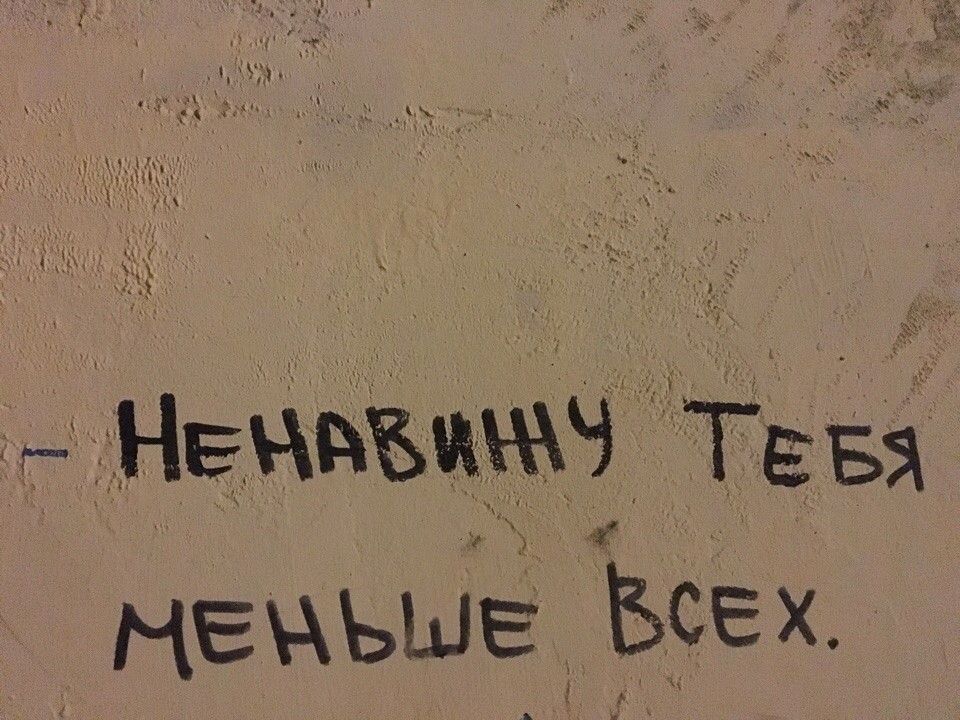 - Ненавижу Тебя
меньше всех.